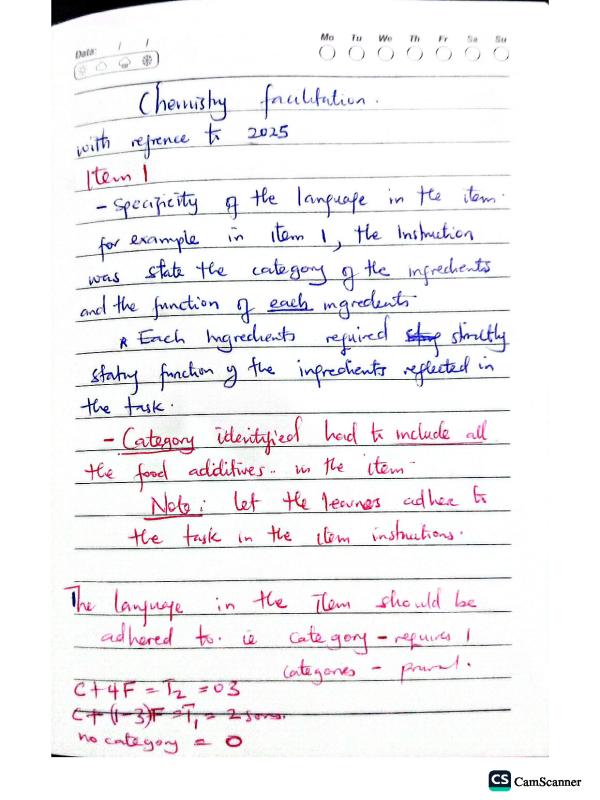 Mo Tu We Th Fr Sa Su
Date: / /
Chemistry facilitation.
with refrence to 2025
Item 1
- Specificity of the language in the item.
for example in item 1, the Instruction
was state the category of the ingredients
and the function of each ingredients.
* Each Ingredients required strictly
stating function of the ingredients reflected in
the task.
- Category identified had to include all
the food additives.. in the item.
Note: let the learners adhere to
the task in the item instructions.
The language in the item should be
adhered to. ie category - requires 1
categories - prural.
C + 4F = T2 = 03
C + (1-3)F = T1 = 2
no category = 0
CS CamScanner